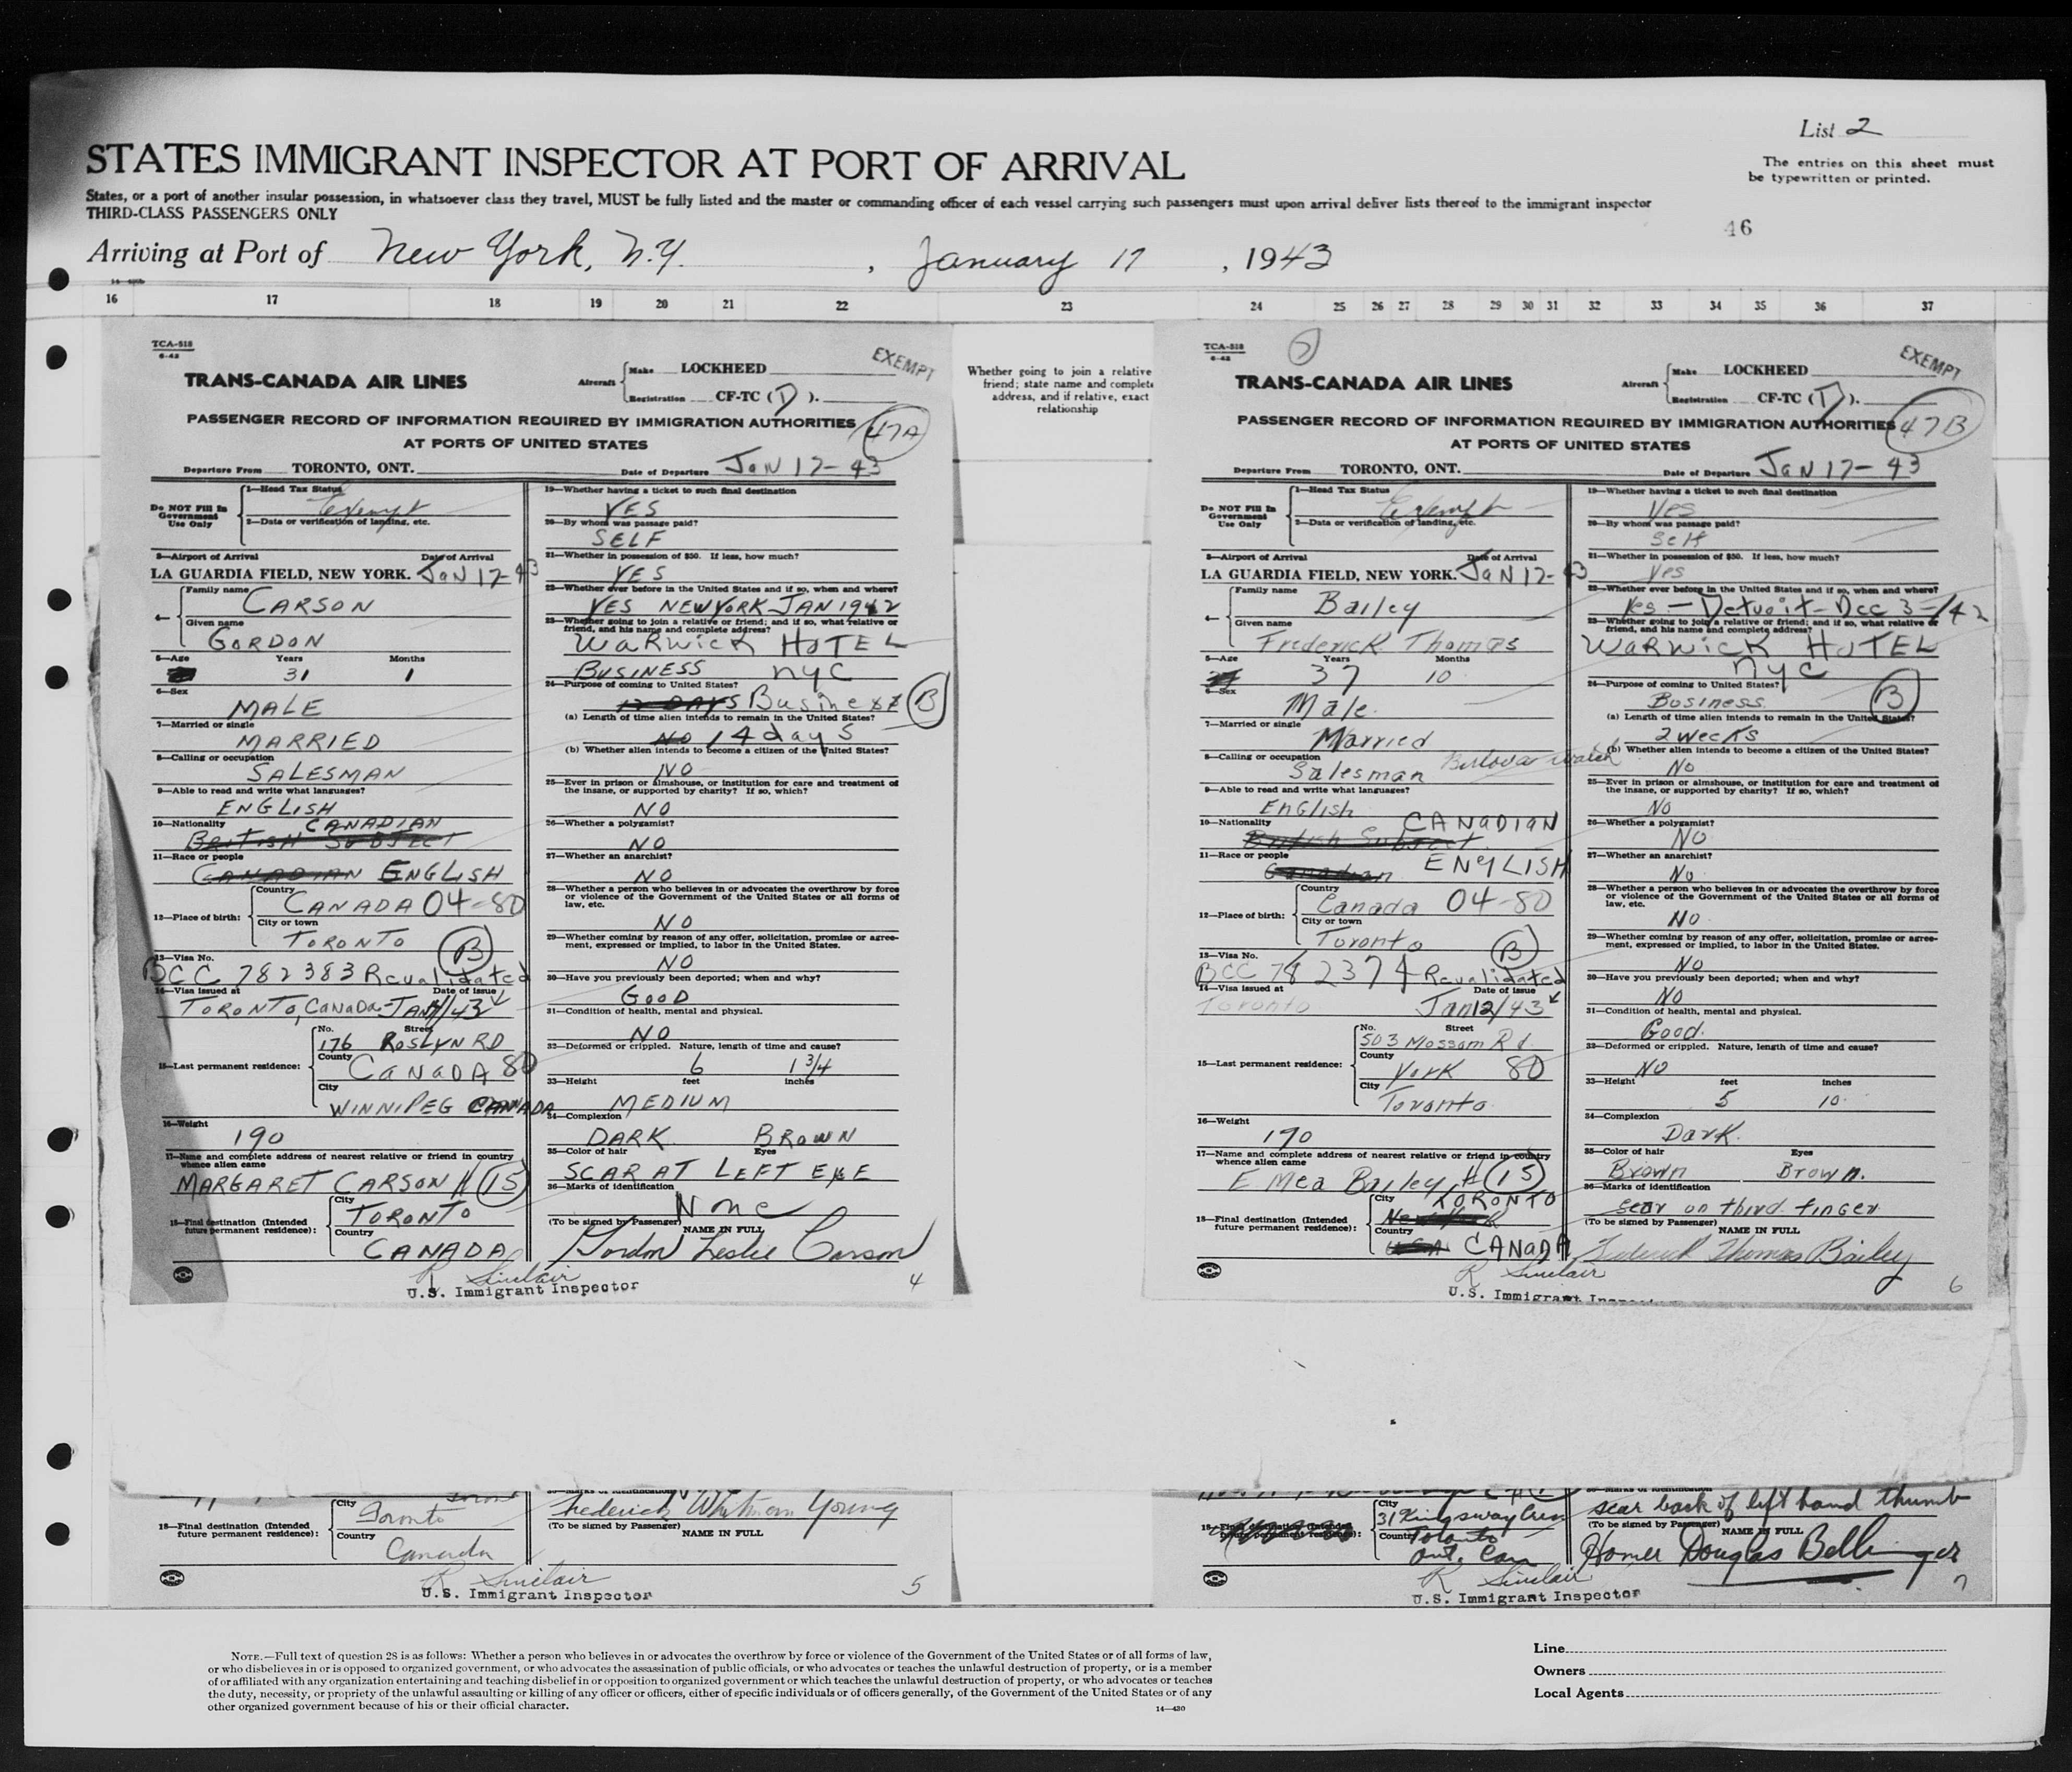 List 2
STATES IMMIGRANT INSPECTOR AT PORT OF ARRIVAL
The entries on this sheet must
be typewritten or printed.
States, or a port of another insular possession, in whatsoever class they travel, MUST be fully listed and the master or commanding officer of each vessel carrying such passengers must upon arrival deliver lists thereof to the immigrant inspector
THIRD-CLASS PASSENGERS ONLY
46
Arriving at Port of New York, N.Y. , January 17 , 1943
16 17 18 19 20 21 22 23 24 25 26 27 28 29 30 31 32 33 34 35 36 37
TCA-518
6-42
EXEMPT
TRANS-CANADA AIR LINES
Aircraft
Make LOCKHEED
Registration CF-TC (D).
PASSENGER RECORD OF INFORMATION REQUIRED BY IMMIGRATION AUTHORITIES
47A
AT PORTS OF UNITED STATES
Departure From TORONTO, ONT. Date of Departure JAN 17-43
Do NOT Fill In
Government
Use Only
1—Head Tax Status
Exempt
2—Data or verification of landing, etc.
3—Airport of Arrival Date of Arrival
LA GUARDIA FIELD, NEW YORK. JAN 17-43
4— Family name CARSON
Given name
GORDON
5—Age Years Months
31 1
6—Sex
MALE
7—Married or single
MARRIED
8—Calling or occupation
SALESMAN
9—Able to read and write what languages?
ENGLISH
10—Nationality CANADIAN
BRITISH SUBJECT
11—Race or people
CANADIAN ENGLISH
12—Place of birth:
Country
CANADA 04-80
City or town
TORONTO
B
13—Visa No.
BCC 782383 Revalidated
14—Visa issued at Date of issue
TORONTO, CANADA-JAN /43
15—Last permanent residence:
No. Street
176 ROSLYN RD
County
CANADA 80
City
WINNIPEG CANADA
16—Weight
190
17—Name and complete address of nearest relative or friend in country
whence alien came
MARGARET CARSON (15)
18—Final destination (Intended
future permanent residence):
City
TORONTO
Country
CANADA
19—Whether having a ticket to such final destination
YES
20—By whom was passage paid?
SELF
21—Whether in possession of $50. If less, how much?
YES
22—Whether ever before in the United States and if so, when and where?
YES NEW YORK JAN 1942
23—Whether going to join a relative or friend; and if so, what relative or
friend, and his name and complete address?
WARWICK HOTEL
BUSINESS NYC
24—Purpose of coming to United States?
12 DAYS Business B
(a) Length of time alien intends to remain in the United States?
NO 14 days
(b) Whether alien intends to become a citizen of the United States?
NO
25—Ever in prison or almshouse, or institution for care and treatment of
the insane, or supported by charity? If so, which?
NO
26—Whether a polygamist?
NO
27—Whether an anarchist?
NO
28—Whether a person who believes in or advocates the overthrow by force
or violence of the Government of the United States or all forms of
law, etc.
NO
29—Whether coming by reason of any offer, solicitation, promise or agree-
ment, expressed or implied, to labor in the United States.
NO
30—Have you previously been deported; when and why?
GOOD
31—Condition of health, mental and physical.
NO
32—Deformed or crippled. Nature, length of time and cause?
6 1 3/4
33—Height feet inches
MEDIUM
34—Complexion
DARK BROWN
35—Color of hair Eyes
SCAR AT LEFT EYE
36—Marks of identification
None
(To be signed by Passenger) NAME IN FULL
Gordon Leslie Carson
R Sinclair
U.S. Immigrant Inspector
4
Whether going to join a relative
friend; state name and complete
address, and if relative, exact
relationship
TCA-518
6-42
EXEMPT
TRANS-CANADA AIR LINES
Aircraft
Make LOCKHEED
Registration CF-TC (D).
PASSENGER RECORD OF INFORMATION REQUIRED BY IMMIGRATION AUTHORITIES
47B
AT PORTS OF UNITED STATES
Departure From TORONTO, ONT. Date of Departure JAN 17-43
Do NOT Fill In
Government
Use Only
1—Head Tax Status
Exempt
2—Data or verification of landing, etc.
3—Airport of Arrival Date of Arrival
LA GUARDIA FIELD, NEW YORK. JAN 17-43
4— Family name
Bailey
Given name
Frederick Thomas
5—Age Years Months
37 10
6—Sex
Male
7—Married or single
Married
8—Calling or occupation
Salesman Bulova Watch
9—Able to read and write what languages?
English
10—Nationality CANADIAN
British Subject
11—Race or people ENGLISH
Canadian
12—Place of birth:
Country
Canada 04-80
City or town
Toronto
B
13—Visa No.
BCC 782374 Revalidated
14—Visa issued at Date of issue
Toronto Jan 12/43
15—Last permanent residence:
No. Street
503 Mossom Rd.
County
York 80
City
Toronto
16—Weight
170
17—Name and complete address of nearest relative or friend in country
whence alien came
E Mea Bailey (15)
18—Final destination (Intended
future permanent residence):
City TORONTO
New York
Country
U.S.A. CANADA
19—Whether having a ticket to such final destination
Yes
20—By whom was passage paid?
Self
21—Whether in possession of $50. If less, how much?
Yes
22—Whether ever before in the United States and if so, when and where?
Yes — Detroit — Dec 3-/42
23—Whether going to join a relative or friend; and if so, what relative or
friend, and his name and complete address?
WARWICK HOTEL
NYC
24—Purpose of coming to United States?
Business B
(a) Length of time alien intends to remain in the United States?
2 weeks
(b) Whether alien intends to become a citizen of the United States?
No
25—Ever in prison or almshouse, or institution for care and treatment of
the insane, or supported by charity? If so, which?
No
26—Whether a polygamist?
NO
27—Whether an anarchist?
No
28—Whether a person who believes in or advocates the overthrow by force
or violence of the Government of the United States or all forms of
law, etc.
No
29—Whether coming by reason of any offer, solicitation, promise or agree-
ment, expressed or implied, to labor in the United States.
No
30—Have you previously been deported; when and why?
No
31—Condition of health, mental and physical.
Good.
32—Deformed or crippled. Nature, length of time and cause?
No
33—Height feet inches
5 10
34—Complexion
Dark.
35—Color of hair Eyes
Brown Brown.
36—Marks of identification
scar on third finger
(To be signed by Passenger) NAME IN FULL
Frederick Thomas Bailey
R Sinclair
U.S. Immigrant
6
18—Final destination (Intended
future permanent residence):
City
Toronto
Country
Canada
Frederick Whitman Young
(To be signed by Passenger)
NAME IN FULL
R Sinclair
U.S. Immigrant Inspector
5
City
31 Kingsway Cres
Country
Toronto
Ont. Can
scar back of left hand thumb
(To be signed by Passenger)
NAME IN FULL
Homer Douglas Bellinger
R Sinclair
U.S. Immigrant Inspector
7
NOTE.—Full text of question 28 is as follows: Whether a person who believes in or advocates the overthrow by force or violence of the Government of the United States or of all forms of law,
or who disbelieves in or is opposed to organized government, or who advocates the assassination of public officials, or who advocates or teaches the unlawful destruction of property, or is a member
of or affiliated with any organization entertaining and teaching disbelief in or opposition to organized government or which teaches the unlawful destruction of property, or who advocates or teaches
the duty, necessity, or propriety of the unlawful assaulting or killing of any officer or officers, either of specific individuals or of officers generally, of the Government of the United States or of any
other organized government because of his or their official character.
14—430
Line
Owners
Local Agents